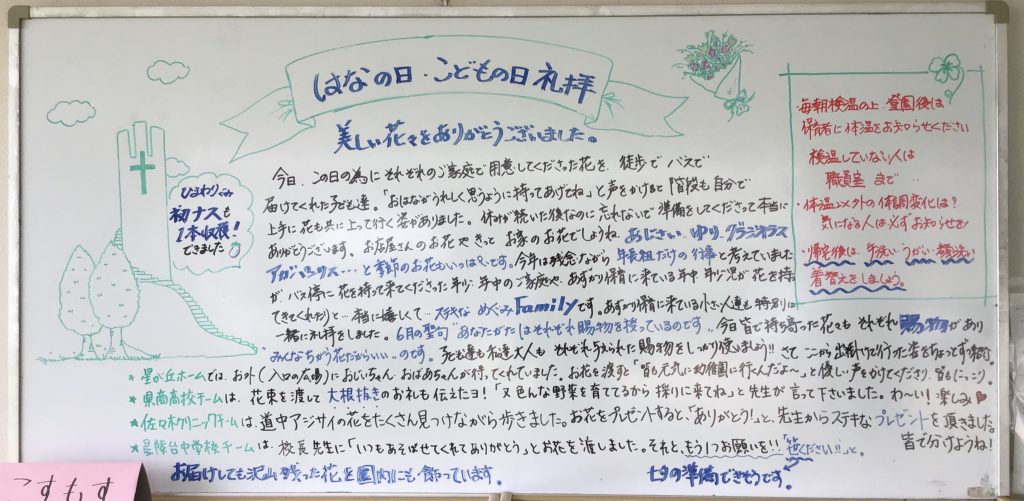 はなの日・こどもの日礼拝
美しい花々をありがとうございました。
ひまわりぐみ
初ナスも
1本収穫!
できました
今日、この日の為に それぞれのご家庭で用意してくださった花を、徒歩で バスで
届けてくれた子ども達。「おはながうれしく思うように持ってあげてね」と声をかけると 階段も自分で
上手に花も共に上って行く姿がありました。休みが続いた後なのに 忘れないで 準備をしてくださって本当に
ありがとうございます。お花屋さんのお花や きっと お家のお花でしょうね、あじさい、ゆり、グラジオラス
アガパンサス…と 季節のお花もいっぱいです。今年は残念ながら 年長組だけの行事と考えていました
が、バス停に 花を持って来てくださった年少・年中のご家庭や、あずかり保育に来ている年中・年少児が 花を持っ
てきてくれたりと…本当に嬉しくて…ステキな めぐみFamilyです。あずかり保育に来ている小さい人達も 特別に
一緒に礼拝をしました。6月の聖句 "あなたがたはそれぞれ賜物を授っているのです"。今日皆で持ち寄った花々も それぞれ賜物があり
みんなちがう花だからいい、のです。子ども達も 私達大人も それぞれ与えられた賜物をしっかり使いましょう!! さて ここから 出掛けて行った
★星が丘ホームでは、お外(入口の広場)におじいちゃん おばあちゃんが待っててくれていました。お花を渡すと「皆も元気に幼稚園に行くんだよ~」と優しい声をかけてくださり 皆もにっこり。
★県商高校チームは、花束を渡して 大根抜きのお礼も伝えたヨ!「又 色んな野菜を育ててるから 採りに来てね」と先生が言って下さいました。わ〜い! 楽しみ♥
★佐々木クリニックチームは、道中アジサイの花をたくさん見つけながら歩きました。お花をプレゼントすると、「ありがとう!」と、先生からステキなプレゼントを頂きました。
皆で分けようね!
★星陵台中学校チームは、校長先生に「いつもあそばせてくれてありがとう」とお花を渡しました。それと、もう1つお願いを!!「笹ください!!」と。
七夕の準備できそうです。
お届けしても沢山残った花を園内にも飾っています。
毎朝検温の上、登園後は
保育者に体温をお知らせください
検温していない人は
職員室まで…
・体温以外の体調変化は?
気になる人は必ずお知らせを!
・帰宅後は、手洗い・うがい・顔洗い
着替えをしましょう。
こすもす